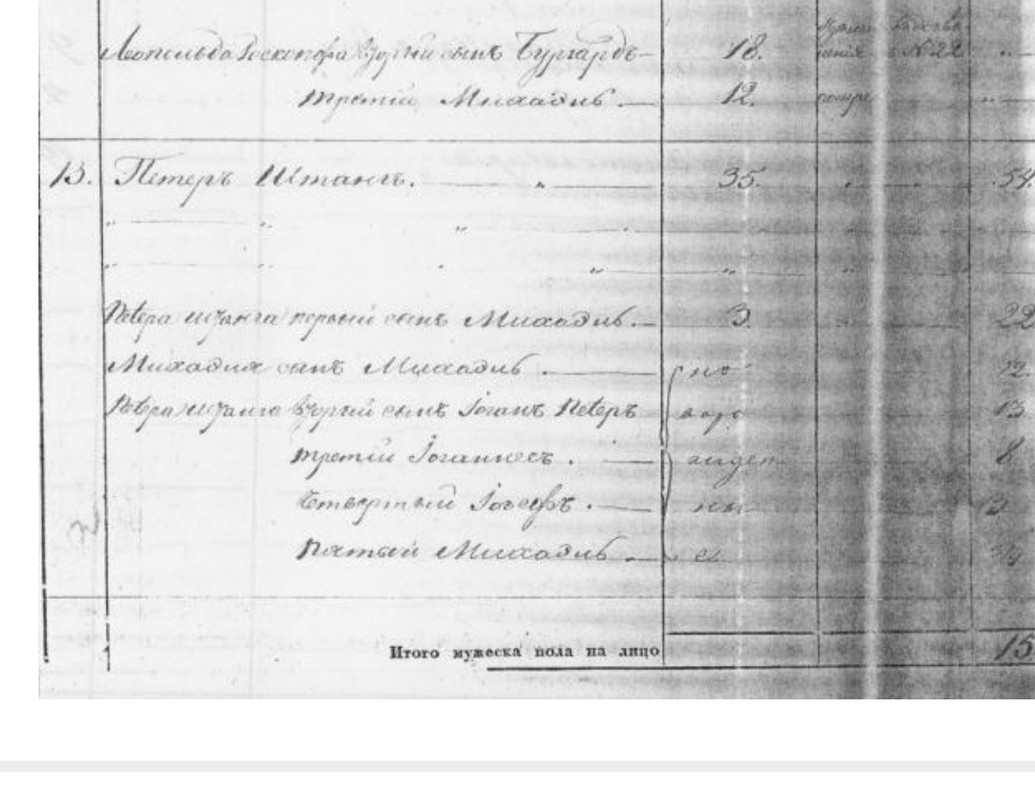 Леопольда Роскопфа вторый сынъ Бургардъ 18. № 22
третій Михаэль. 12.
13. Петеръ Штангъ. 35. 54
Петера Штанга первый сынъ Михаэль. 3. 22
Михаэля сынъ Михаэль. но
Петера Штанга вторый сынъ Іоганъ Петеръ воро 13
третій Іоганнесъ. жден 8
четвертый Іосефъ. ны
пятый Михаэль. е
Итого мужеска пола на лицо 15